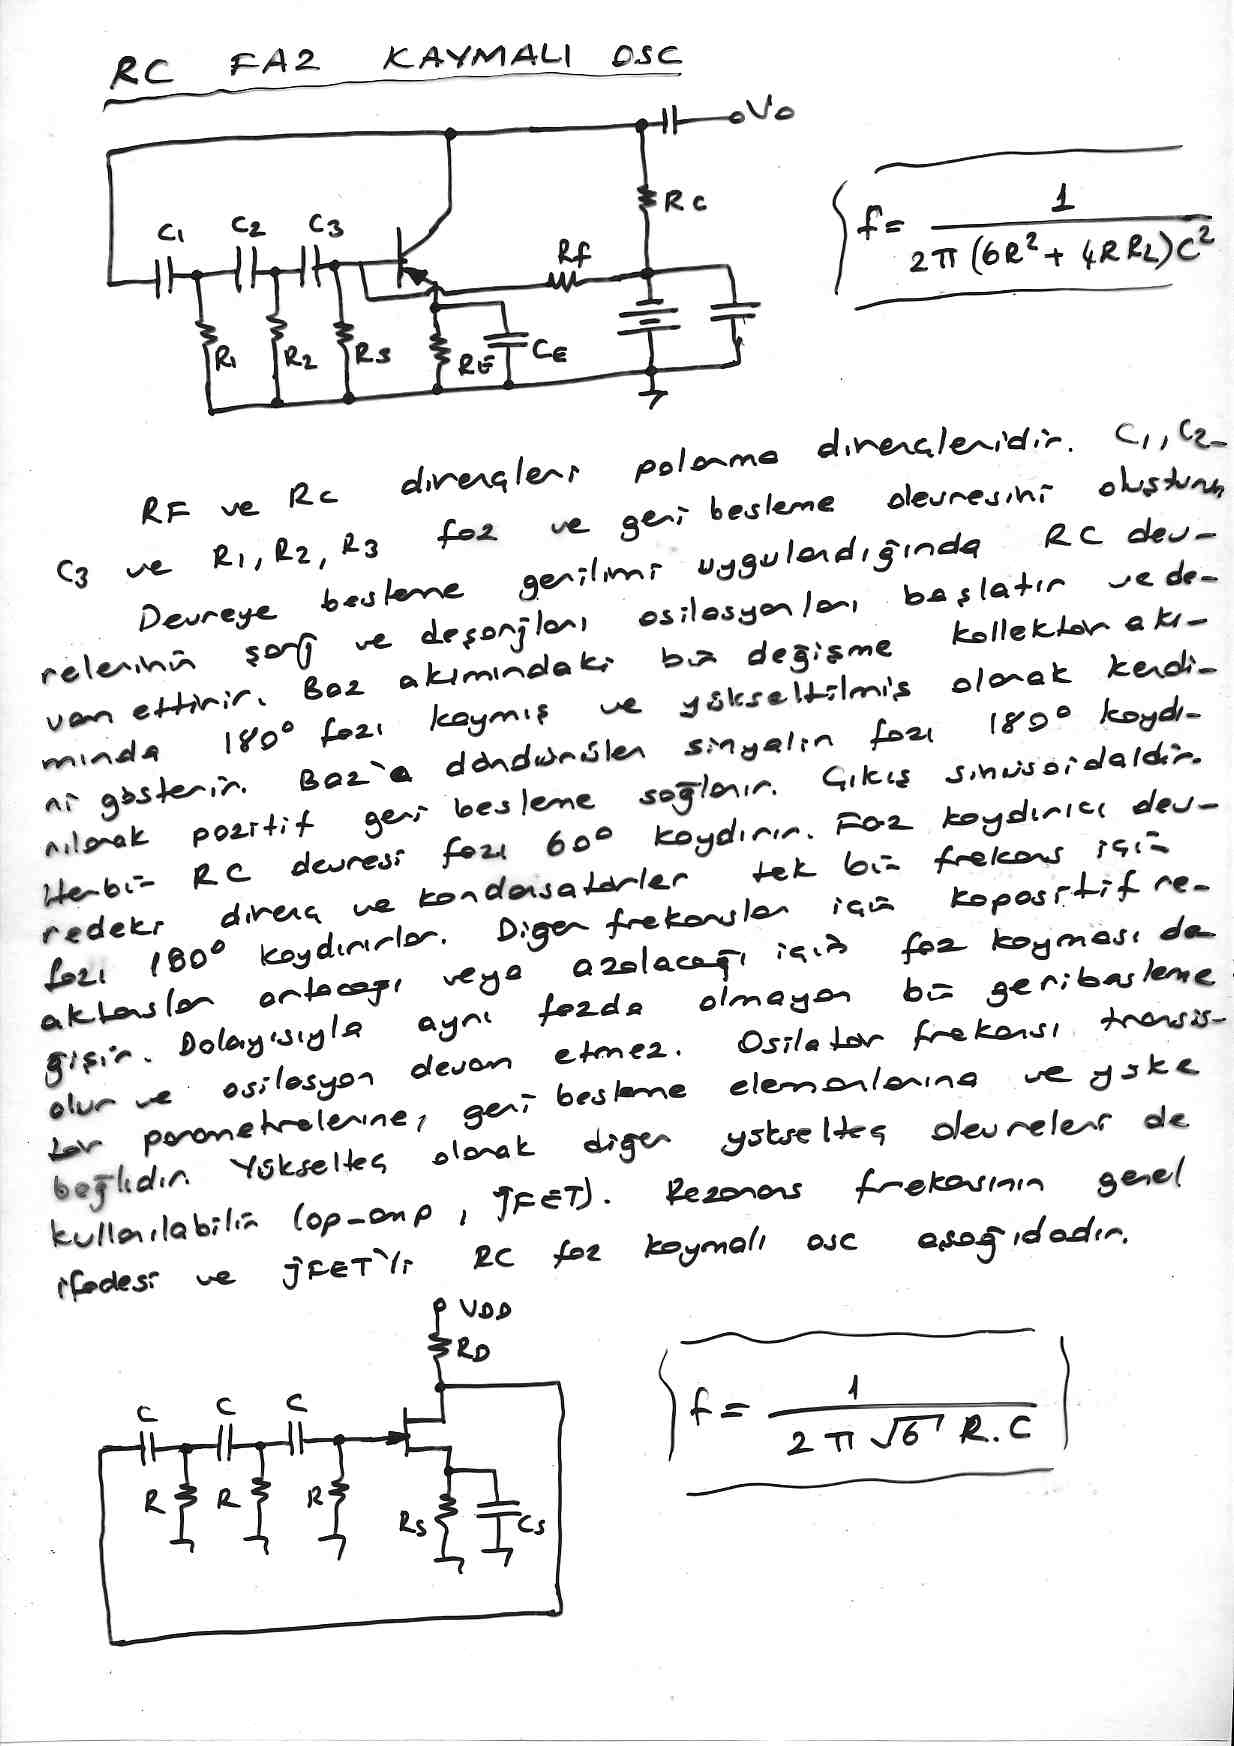 RC FAZ KAYMALI OSC
Vo
RC
f= 1 / 2π (6R² + 4R RL)C²
C1 C2 C3
Rf
R1 R2 R3 RE CE
RF ve Rc dirençleri polarma dirençleridir. C1, C2-
C3 ve R1, R2, R3 faz ve geri besleme devresini oluşturur
Devreye besleme gerilimi uygulandığında RC dev-
relerinin şarj ve deşarjları osilasyonları başlatır ve de-
vam ettirir. Baz akımındaki bir değişme kollektör akı-
mında 180° fazı kaymış ve yükseltilmiş olarak kendi-
ni gösterir. Baz'a döndürülen sinyalin fazı 180° kaydı-
rılarak pozitif geri besleme sağlanır. Çıkış sinüsoidaldir.
Herbir RC devresi fazı 60° kaydırır. Faz kaydırıcı dev-
redeki direnç ve kondansatörler tek bir frekans için
fazı 180° kaydırırlar. Diğer frekanslar için kapasitif re-
aktanslar artacağı veya azalacağı için faz kayması de
ğişir. Dolayısıyla aynı fazda olmayan bir geribasleme
olur ve osilasyon devam etmez. Osilatör frekansı transis-
tör parametrelerine, geri besleme elemanlarına ve yüke
bağlıdır. Yükselteç olarak diğer yükselteç devreleri de
kullanılabilir (op-amp, JFET). Rezonans frekansının genel
ifadesi ve JFET'li RC faz kaymalı osc aşağıdadır.
VDD
RD
C C C
R R R
RS CS
f= 1 / 2π √6 R.C